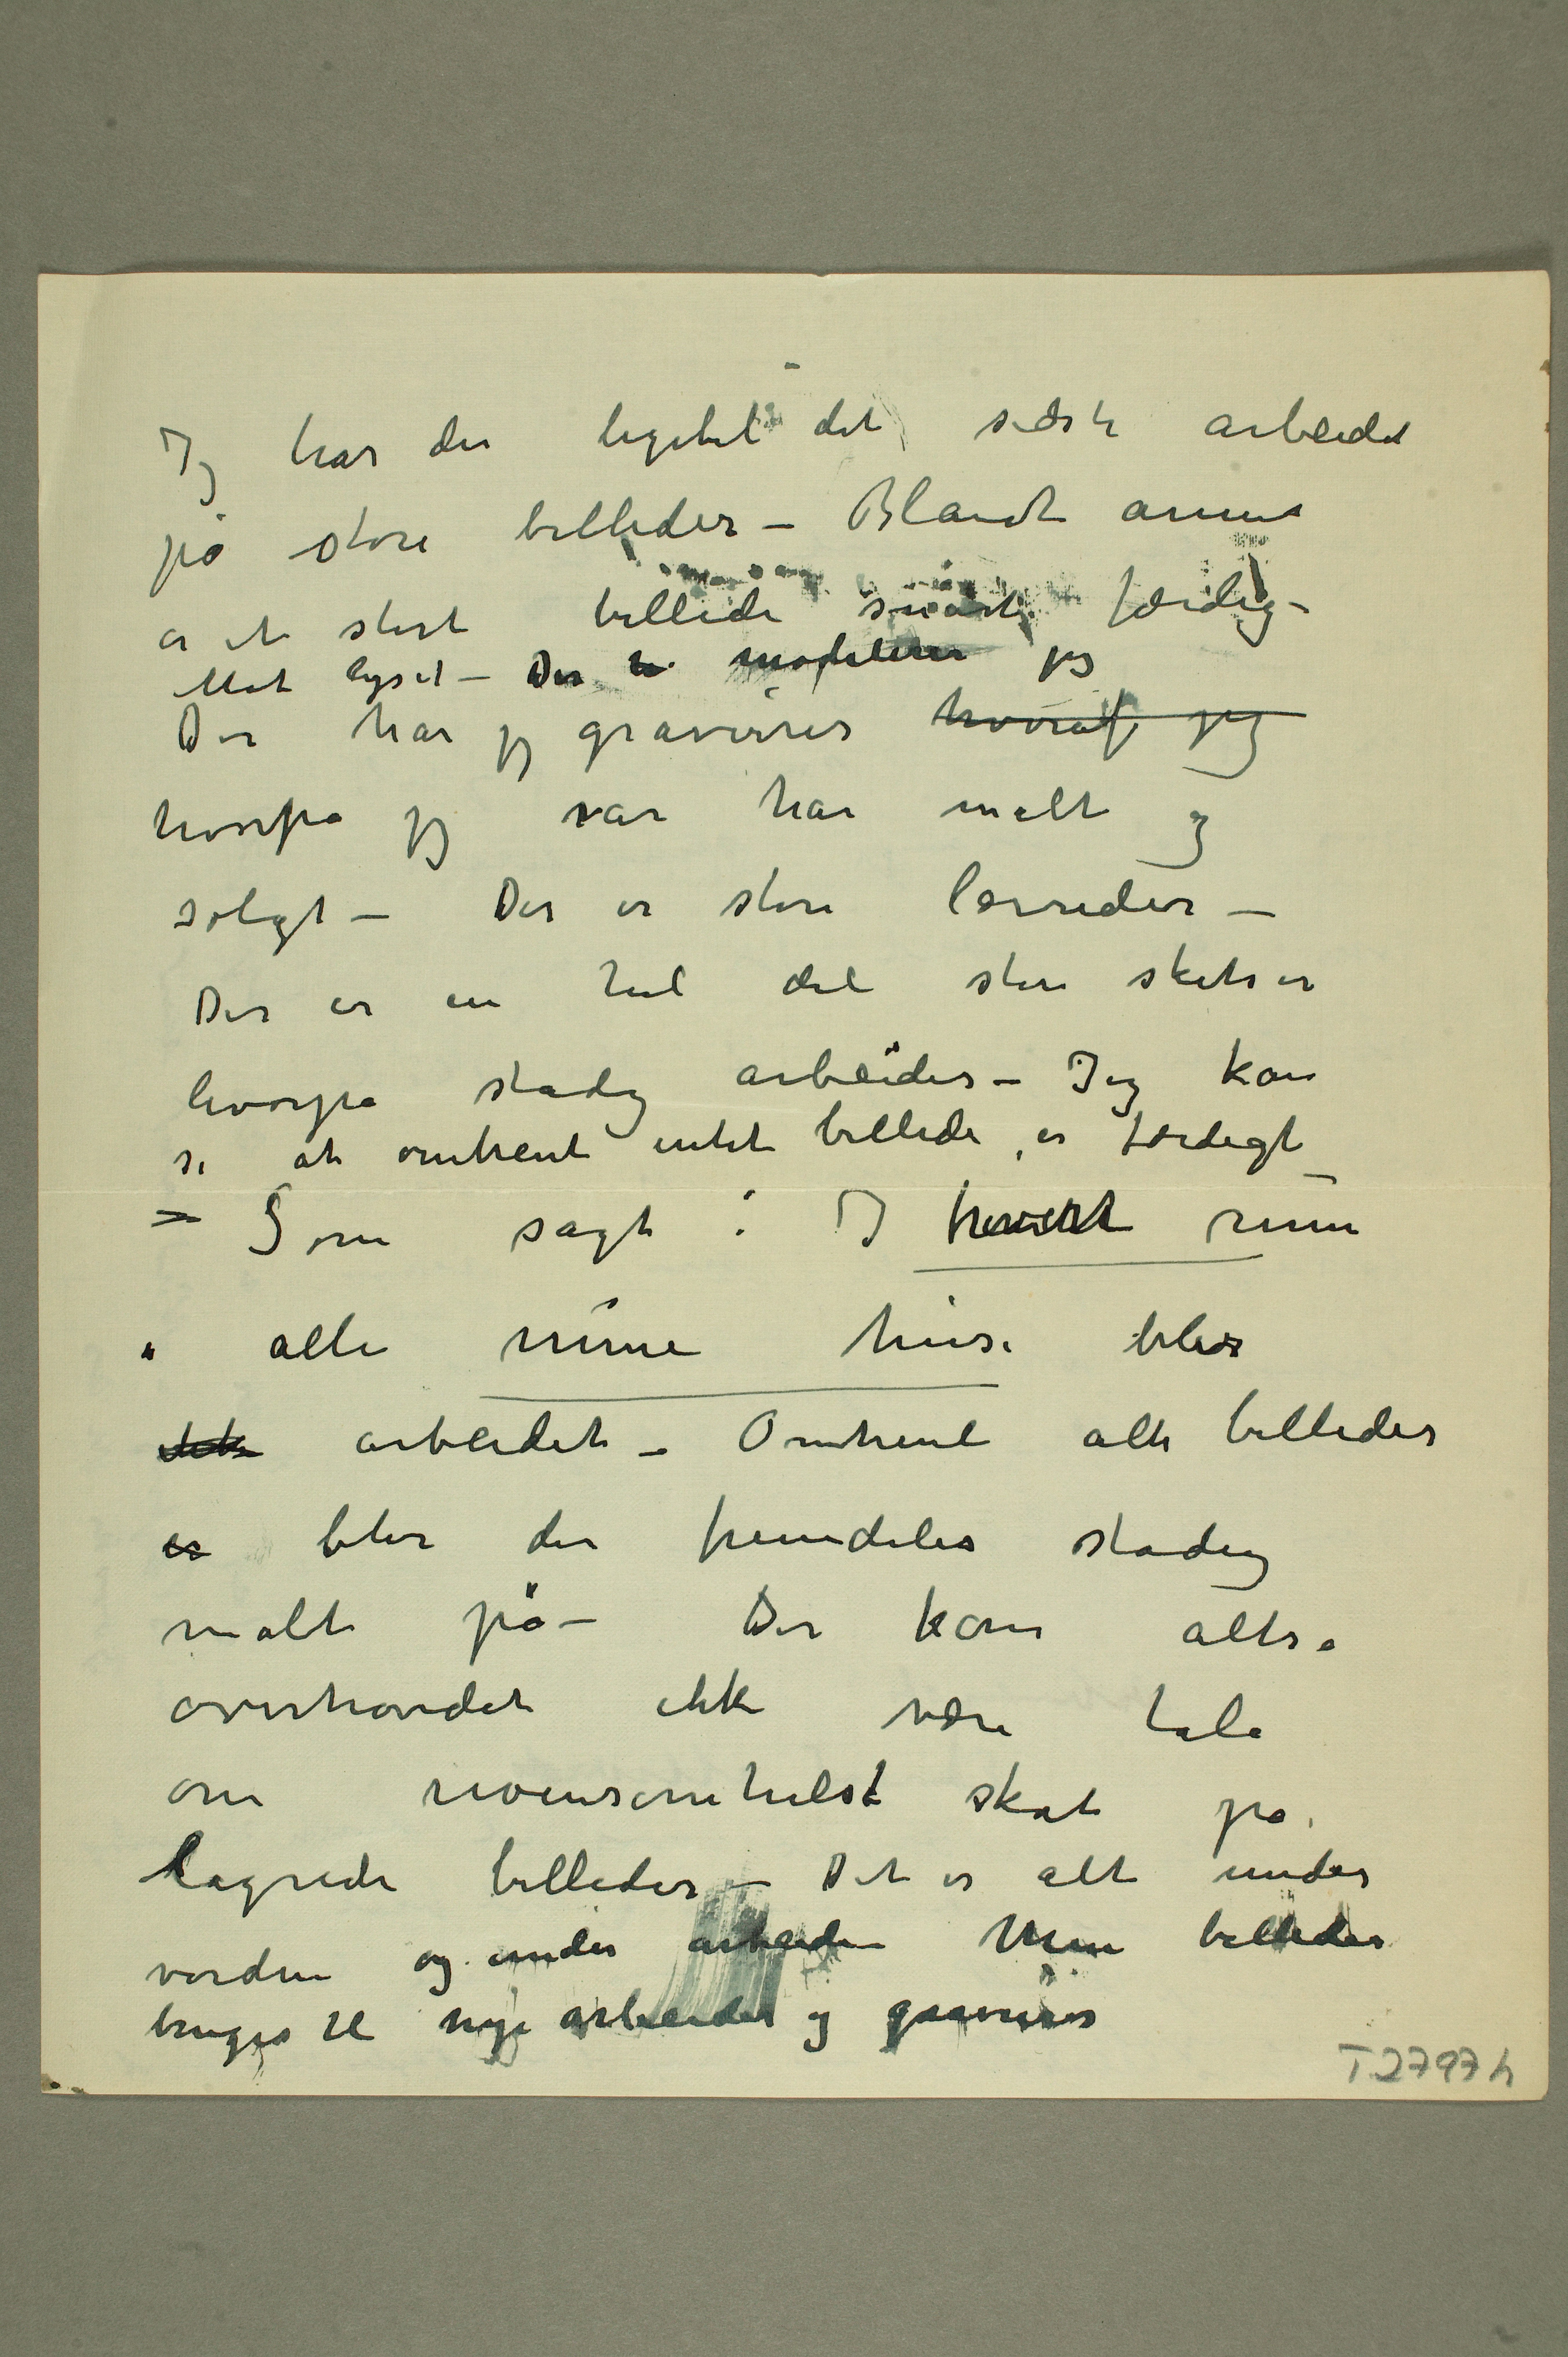 Jeg har der ligetil det sidste arbeidet
på store billeder – Blandt annet
er et stort billede snart færdig –
Mot lyset – Der modellerer jeg
Der har jeg gravurer hvoraf jeg
hvorpå jeg har malt og
solgt – Der er store lærreder –
Der er en hel del store skitser
hvorpå stadig arbeides – Jeg kan
si at omtrent intet billede er færdigt –
– Som sagt: I hvert rum
i alle mine huse blir
ikke arbeidet – Omtrent alle billeder
er blir der fremdeles stadig
malt på – Der kan altså
overhovedet ikke være tale
om noensomhelst skat på
lagrede billeder – Det er alt under
vorden og under arbeide Mine billeder
bruges til nye arbeider og gravurer
T 2797 h